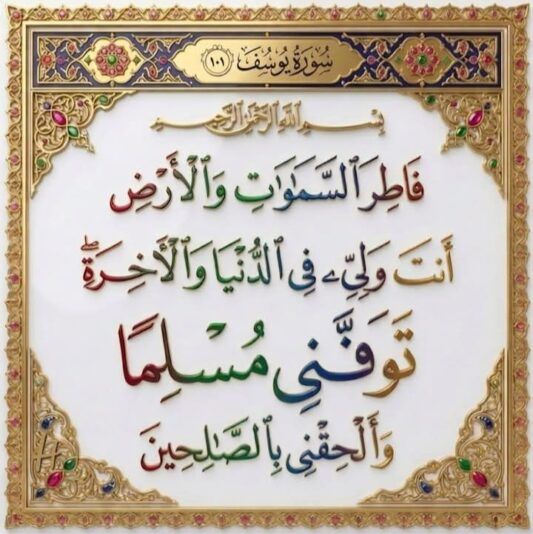 سُورَةُ يُوسُفَ ١٠١
بِسْمِ ٱللَّهِ ٱلرَّحْمَٰنِ ٱلرَّحِيمِ
فَاطِرَ ٱلسَّمَٰوَٰتِ وَٱلْأَرْضِ
أَنتَ وَلِىِّۦ فِى ٱلدُّنْيَا وَٱلْأَخِرَةِۖ
تَوَفَّنِى مُسْلِمًا
وَأَلْحِقْنِى بِٱلصَّٰلِحِينَ